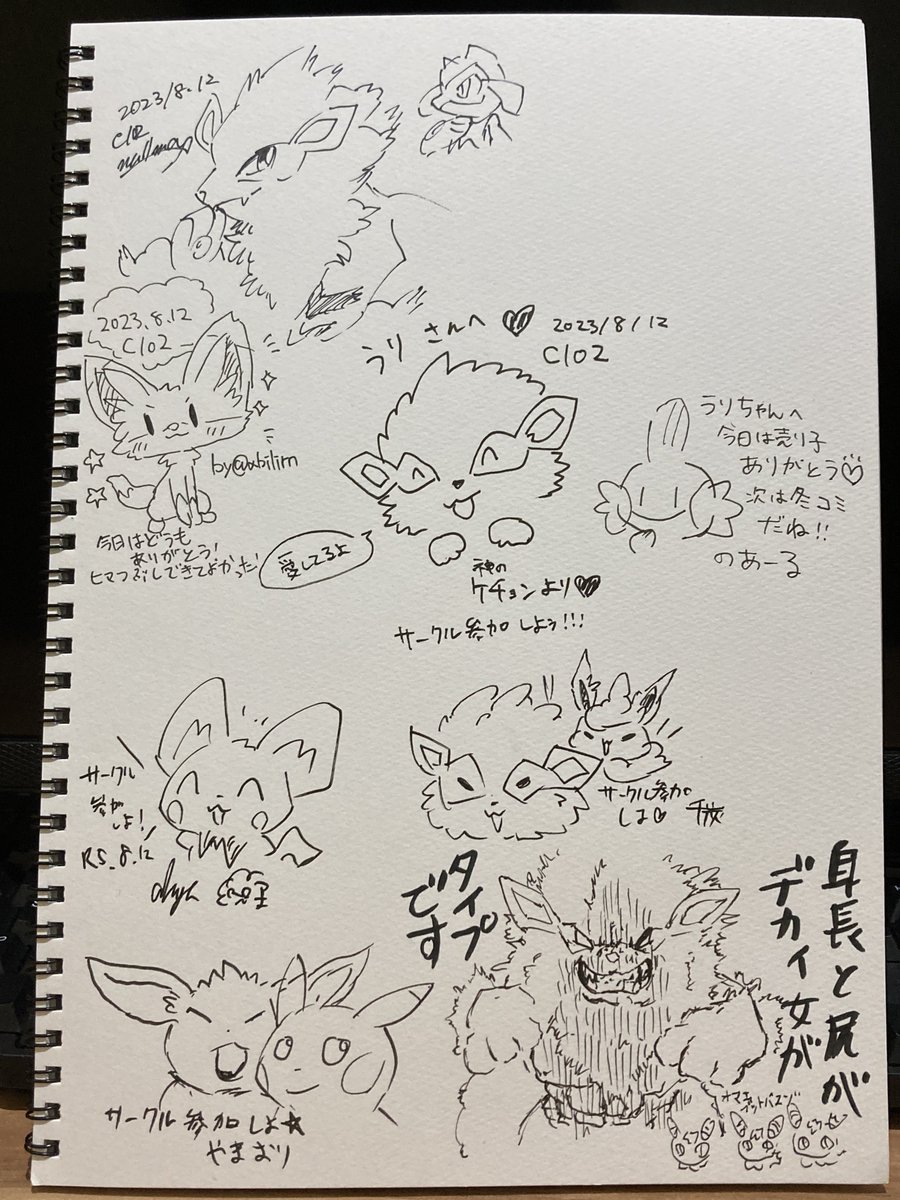 2023/8.12
C102
2023.8.12
C102
by@abilim
今日はどうも
ありがとう!
ヒマつぶしできてよかった!
うりさんへ♡
2023/8/12
C102
愛してるよ
神の
ケチョンより♡
サークル参加しよう!!!
うりちゃんへ
今日は売り子
ありがとう♡
次は冬コミ
だね!!
のあーる
サークル
参加
しよ!
R5.8.12
サークル参加
しよ♡
身長と尻が
デカイ女が
タイプ
です
サークル参加しよ☆
やまおり